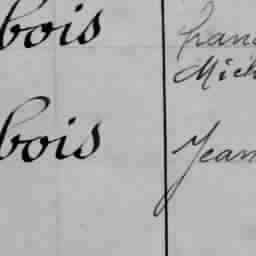 bois
Franc
Mich
bois
Jean